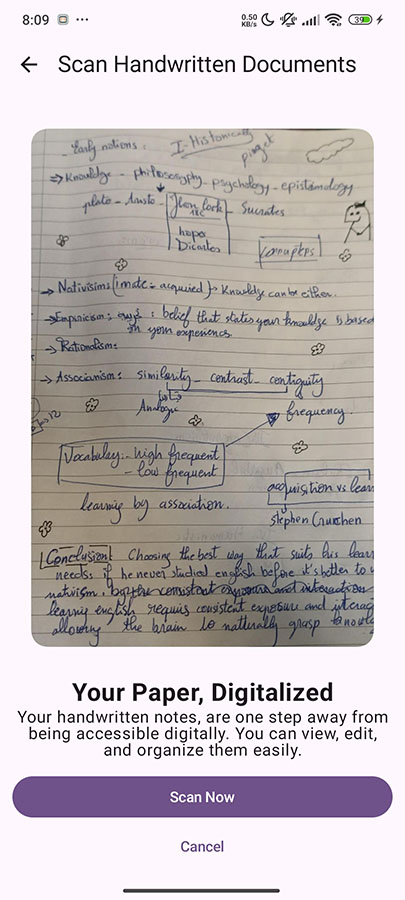 8:09
0.50 KB/s
39
Scan Handwritten Documents
Early notions :
I-Historically
piaget
⇒ Knowledge - philosophy - psychology - epistemology
plato - Aristo - Jhon lock - Sucrates
hops
Dicartes
concepts
→ Nativisims (inate - acquired) → Knowledge can be either.
→ Empiricism: : belief that states your knowldge is based
in your experience.
→ Rationalism:
→ Associanism: similarity - contrast - contiguity
Analogic
frequency.
12
Vocabulay: - high frequent
- low frequent
acquisition vs lear
learning by association.
stephen
Conclusion: Choosing the best way that suits his lear
needs: if he never studied english before it's better to
nativism. by the consistent exposure and interaction
learnig english requis consistent exposure and interac
allowing the brain to natturally grasp
Your Paper, Digitalized
Your handwritten notes, are one step away from
being accessible digitally. You can view, edit,
and organize them easily.
Scan Now
Cancel